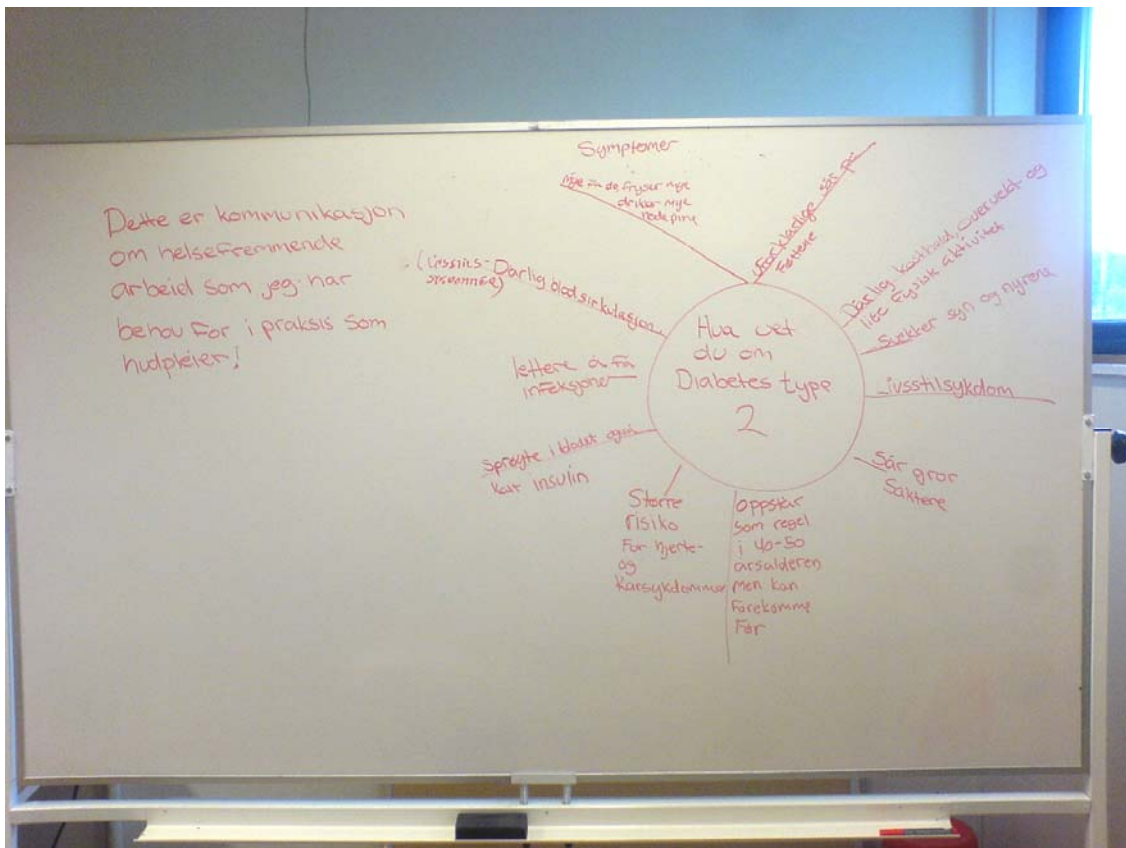 Dette er kommunikasjon
om helsefremmende
arbeid som jeg har
behov for i praksis som
hudpleier!
Symptomer
Mye do, fryser mye
drikker mye
hodepine
uforklarlige sår på
føttene
Dårlig kosthold, overvekt og
lite fysisk aktivitet
svekker syn og nyrene
Livsstilsykdom
Sår gror
saktere
oppstår
som regel
i 40-50
årsalderen
men kan
forekomme
før
Større
risiko
for hjerte-
og
karsykdommer
sprøyte i blodet
insulin
lettere å få
infeksjoner
Dårlig blodsirkulasjon
Hva vet
du om
Diabetes type
2